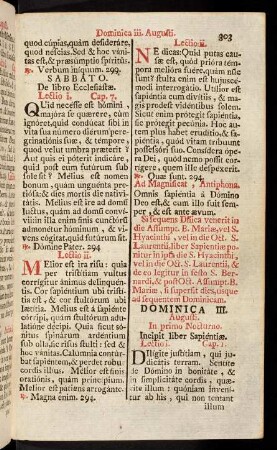 Dominica iii. Augusti.
303
quod cupias, quàm desideráre,
quod néscias. Sed & hoc váni-
tas est, & præsúmptio spíritûs.
℟. Verbum iníquum. 299.
SABBATO.
De libro Ecclesiastæ.
Lectio i. Cap. 7.
QUid necésse est hómini
majóra se quǽrere, cùm
ignóret, quid condúcat sibi in
vita sua número diérum pere-
grinatiónis suæ, & témpore,
quod velut umbra prǽterit?
Aut quis ei póterit indicáre,
quid post eum futúrum sub
sole sit? Mélius est nomen
bonum, quàm unguénta pre-
tiósa; & dies mortis die nativi-
tátis. Mélius est ire ad domum
luctûs, quàm ad domum conví-
vii: in illa enim finis cunctórum
admonétur hóminum, & vi-
vens cógitat, quid futúrum sit.
℟. Dómine Pater. 294
Lectio ii.
MElior est ira risu: quia
per tristítiam vultûs
corrígitur ánimus delinquén-
tis. Cor sapiéntium ubi tristí-
tia est, & cor stultórum ubi
lætítia. Mélius est à sapiénte
córripi, quàm stultórum adu-
latióne décipi. Quia sicut só-
nitus spinárum ardéntium
sub olla, sic risus stulti: sed &
hoc vánitas. Calúmnia contúr-
bat sapiéntem, & perdet robur
cordis illíus. Mélior est finis
oratiónis, quàm princípium.
Mélior est pátiens arrogánte.
℟. Magna enim. 294.
Lectio iii.
NE dicas: Quid putas cau-
sæ est, quòd prióra tém-
pora melióra fuére, quàm nunc
sunt? stulta enim est hujuscé-
modi interrogátio. Utílior est
sapiéntia cum divítiis, & ma-
gis prodest vidéntibus solem.
Sicut enim prótegit sapiéntia,
sic prótegit pecúnia. Hoc au-
tem plus habet erudítio, & sa-
piéntia, quòd vitam tríbuunt
possessóri suo. Consídera ópera
Dei, quòd nemo possit cor-
rígere, quem ille despéxerit.
℟. Quæ sunt. 294.
Ad Magnificat, Antiphona.
Omnis sapiéntia à Dómino
Deo est, & cum illo fuit sem-
per, & est ante ævum.
DOMINICA III.
Augusti.
In primo Nocturno.
Incipit liber Sapiéntiæ.
Lectio i. Cap. 1.
DIlígite justítiam, qui ju-
dicátis terram. Sentíte
de Dómino in bonitáte, &
in simplicitáte cordis, quæ-
rite illum: quóniam invení-
tur ab his, qui non tentant
illum